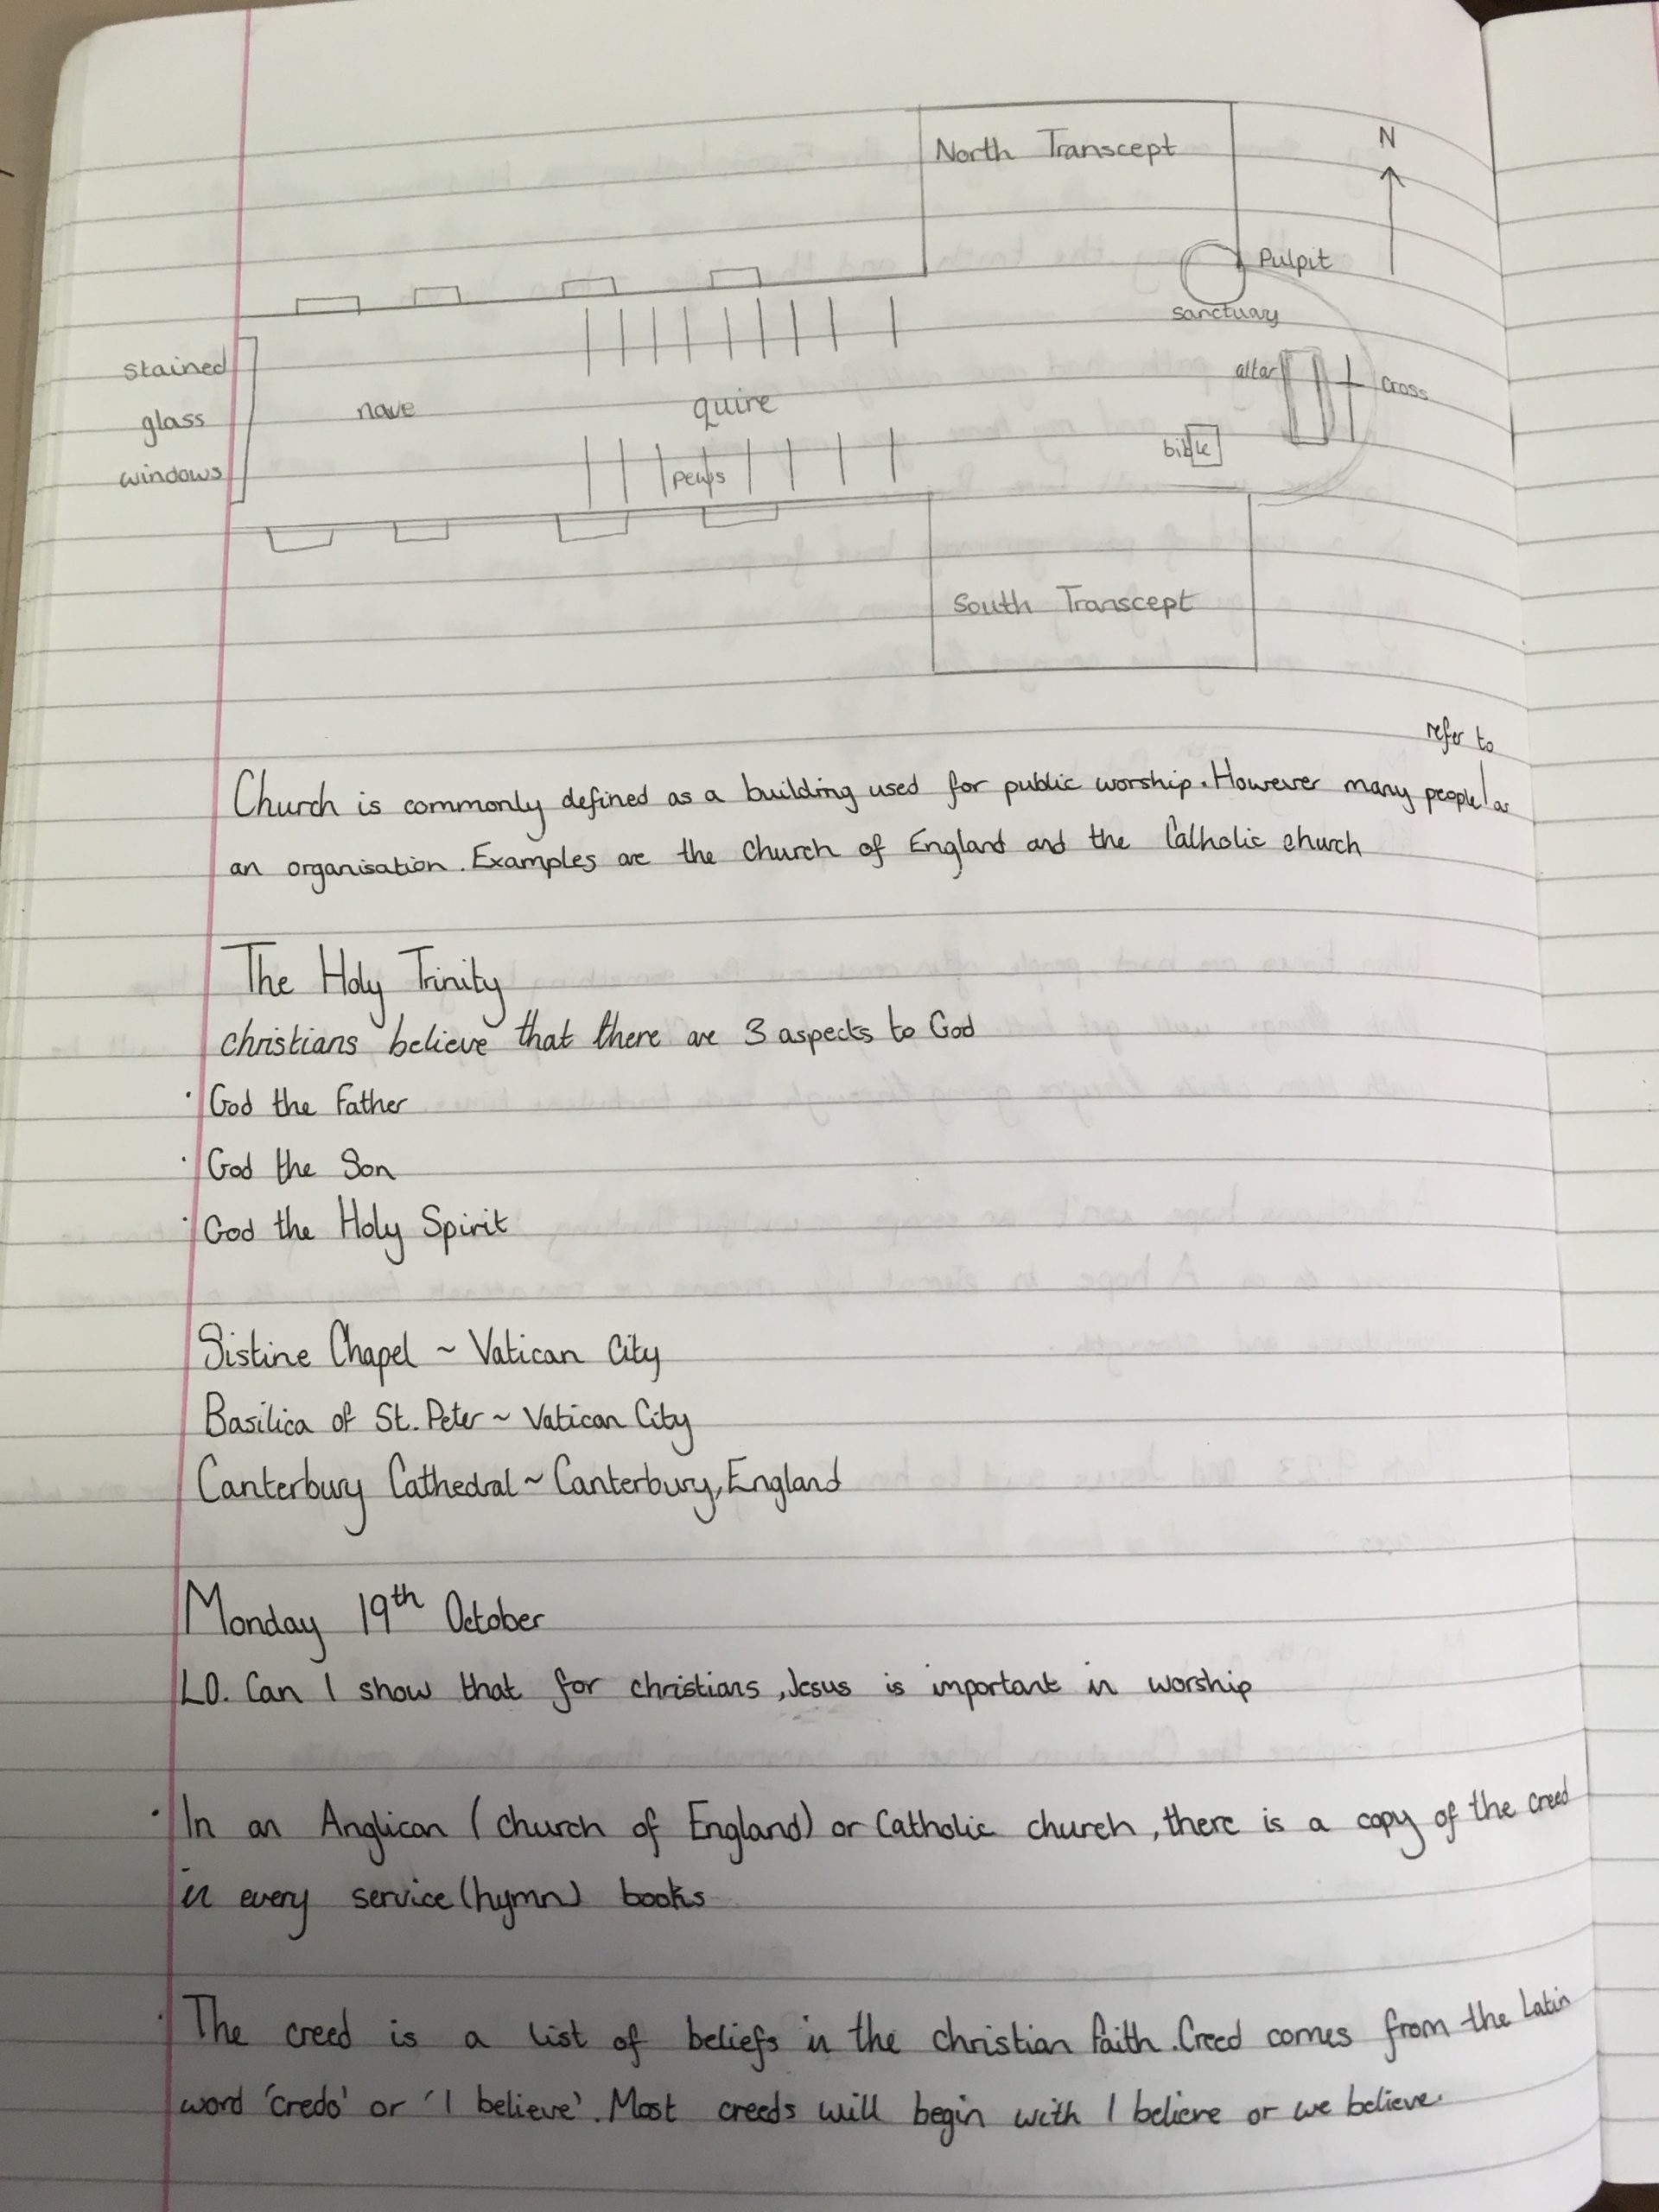 North Transcept
N
Pulpit
sanctuary
stained
glass
windows
altar
cross
nave
quire
bible
pews
South Transcept
refer to
Church is commonly defined as a building used for public worship. However many people as
an organisation. Examples are the church of England and the Catholic church
The Holy Trinity
christians believe that there are 3 aspects to God
· God the Father
· God the Son
· God the Holy Spirit
Sistine Chapel ~ Vatican City
Basilica of St. Peter ~ Vatican City
Canterbury Cathedral ~ Canterbury, England
Monday 19th October
LO. Can I show that for christians, Jesus is important in worship
· In an Anglican (church of England) or Catholic church, there is a copy of the creed
in every service (hymn) books
· The creed is a list of beliefs in the christian faith. Creed comes from the Latin
word 'credo' or 'I believe'. Most creeds will begin with I believe or we believe.